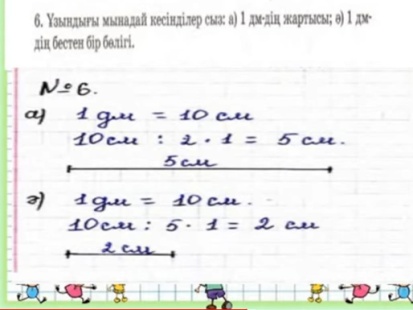 6. Ұзындығы мынадай кесінділер сыз: а) 1 дм-дің жартысы; ә) 1 дм-
дің бестен бір бөлігі.
№ 6.
а) 1 дм = 10 см
10 см : 2 · 1 = 5 см.
5 см
ә) 1 дм = 10 см.
10 см : 5 · 1 = 2 см
2 см